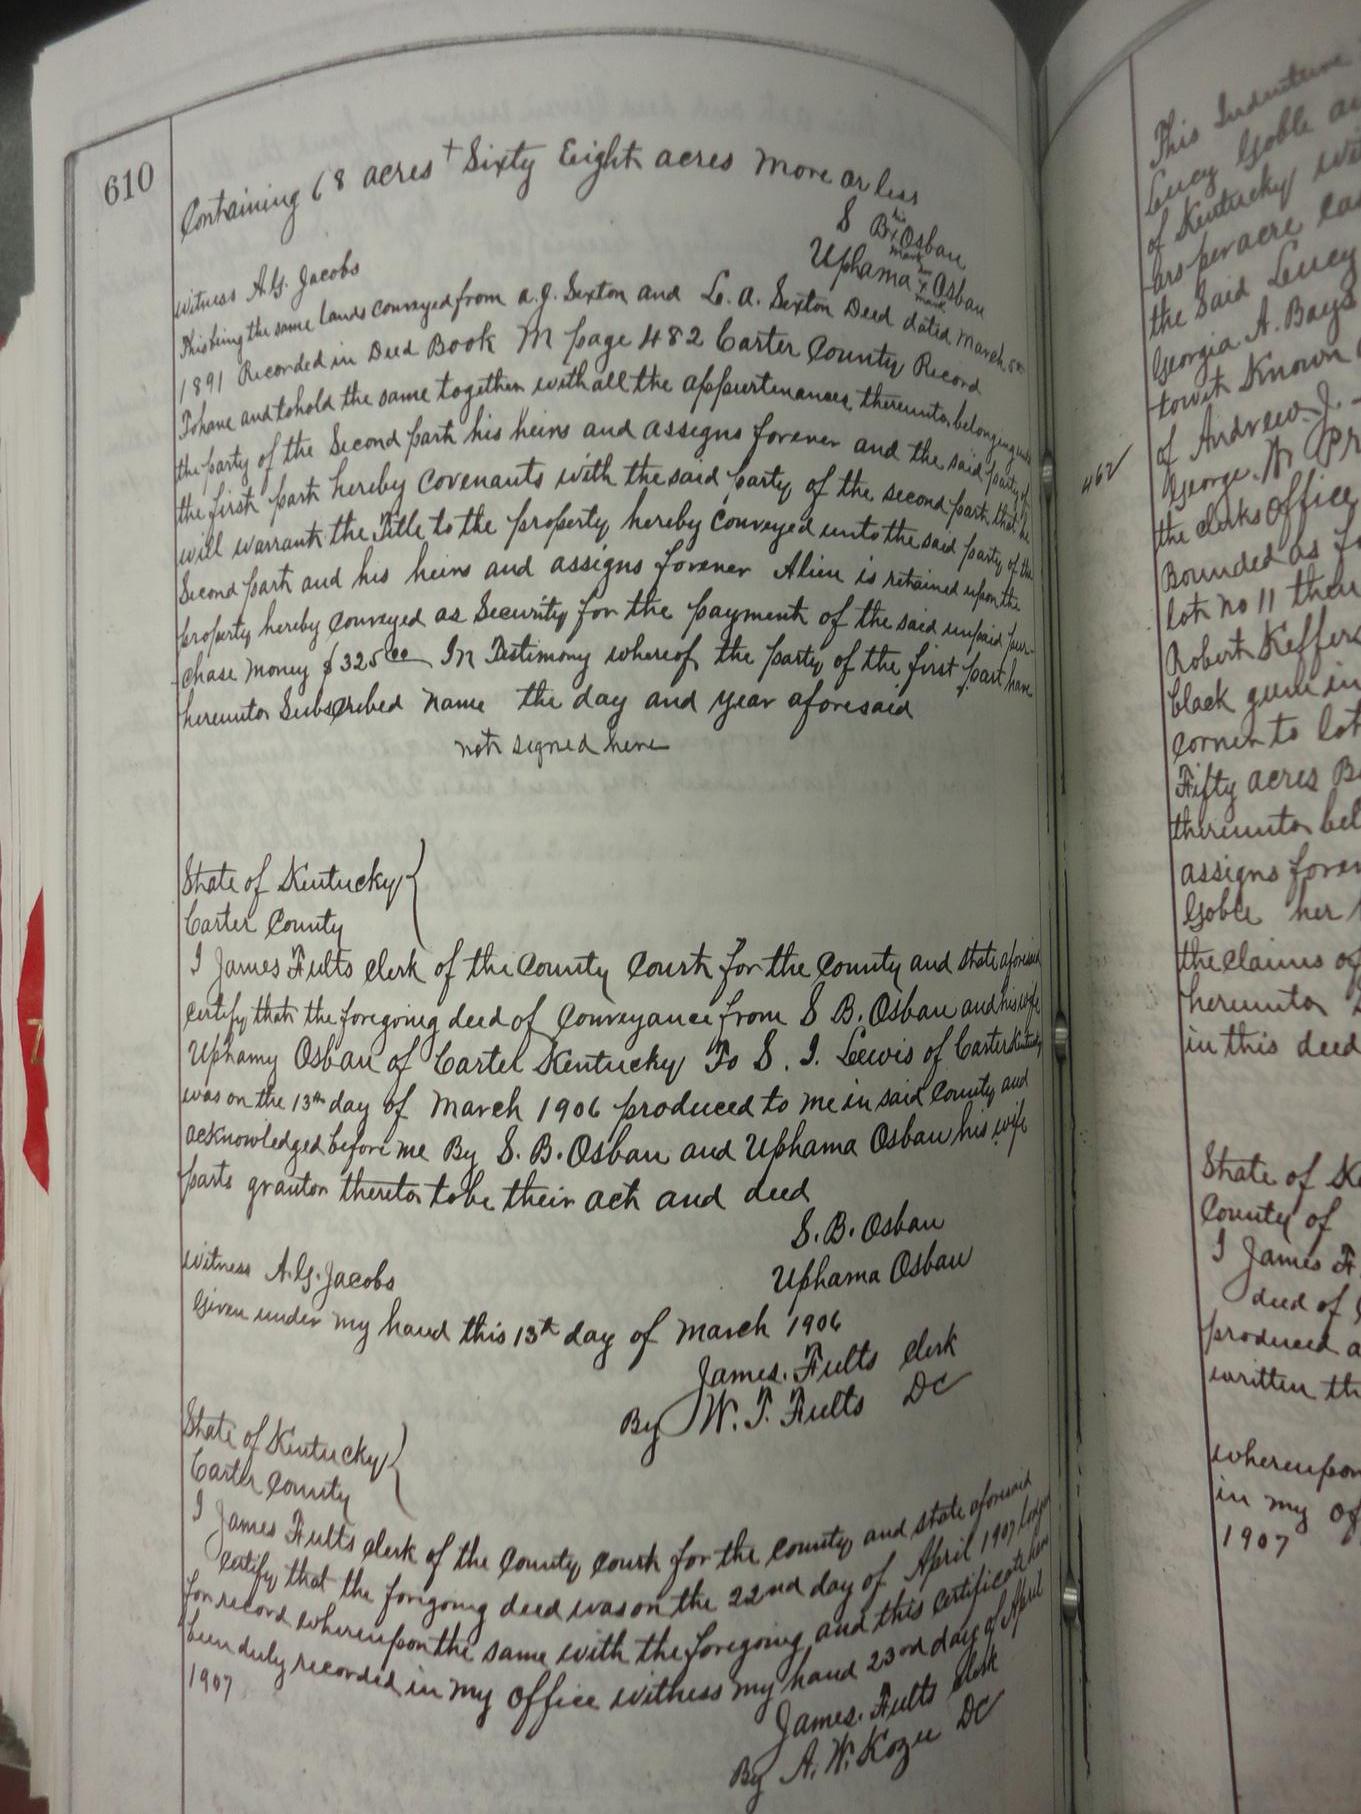 610
Containing 68 acres + Sixty Eight acres More or less
S B his x mark Osbau
Uphama x mark Osbau
witness A.G. Jacobs
This being the same lands conveyed from a.J. Sexton and L. a. Sexton Deed dated March 5th
1891 Recorded in Deed Book M page 482 Carter County Record
To have and to hold the same together with all the appurtenances thereunto belonging unto
the party of the Second part his heirs and assigns forever and the said party of
the first part hereby Covenants with the said party of the second part that he
will warrant the Title to the property hereby Conveyed unto the said party of the
Second part and his heirs and assigns forever A lien is retained upon the
property hereby Conveyed as Security for the payment of the said unpaid pur-
chase money $325 00 In Testimony whereof the party of the first part have
hereunto Subscribed Name the day and year aforesaid
not signed here
State of Kentucky }
Carter County
I James Fults clerk of the County Court for the County and State aforesaid
certify that the foregoing deed of Conveyance from S B. Osbau and his wife
Uphamy Osbau of Carter Kentucky To S. I. Lewis of Carter Kentucky
was on the 13th day of March 1906 produced to me in said County and
acknowledged before me By S. B. Osbau and Uphama Osbau his wife
parts grantor thereto to be their act and deed
S. B. Osbau
Uphama Osbau
witness A.G. Jacobs
Given under my hand this 13th day of March 1906
James. Fults Clerk
By W. T. Fults DC
State of Kentucky }
Carter County
I James Fults clerk of the County Court for the County and State aforesaid
Certify that the foregoing deed was on the 22nd day of April 1907
for record whereupon the same with the foregoing and this Certificate have
been duly recorded in my office witness my hand 23rd day of April
1907
James. Fults clerk
By A. W. Kozee DC
7
462
This Indenture
Lucy Goble
of Kentucky
ars per acre
the Said Lucy
Georgia A. Bays
towit Known
of Andrew. J.
George. W.
the clerks Office
Bounded as
lot no 11
Robert Keffer
black gum in
Corner to lot
Fifty acres
thereunto
assigns
Goble her
the claims of
hereunto
in this deed
State of
County of
I James
deed of
produced
written
whereupon
in my
1907